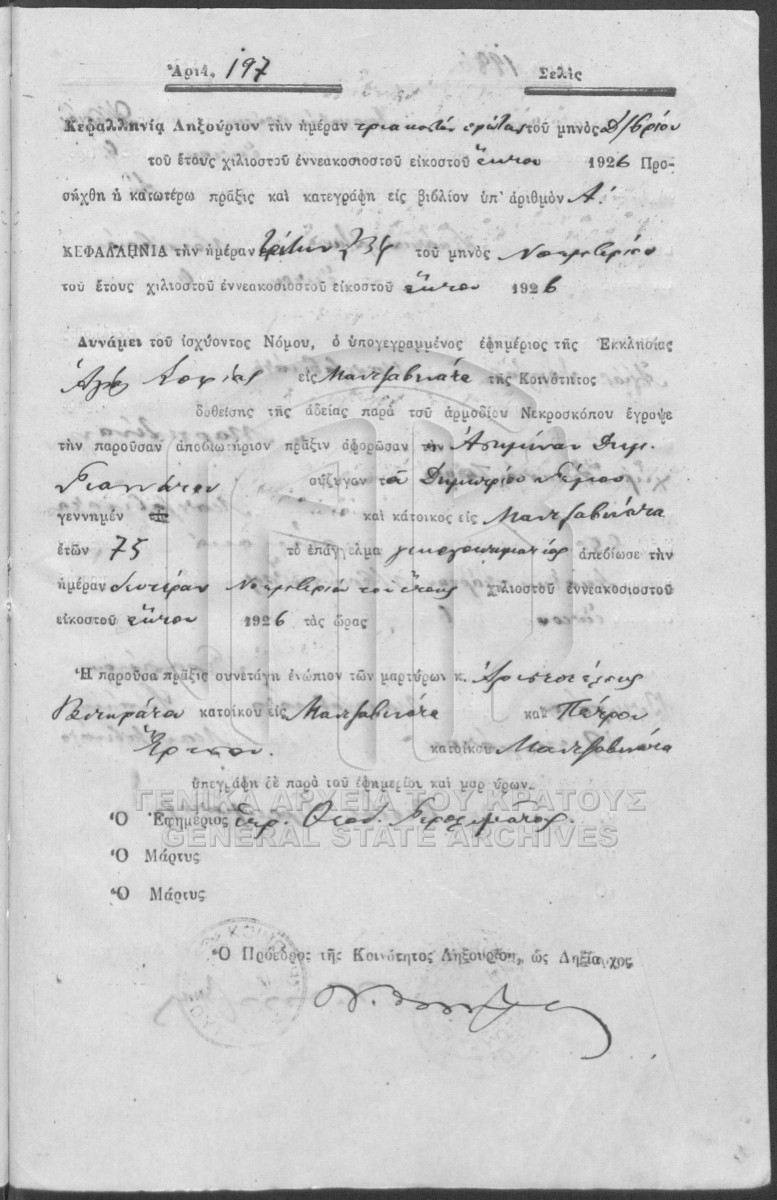 Ἀριθ. 197 Σελὶς
Κεφαλληνία Ληξούριον τὴν ἡμέραν τριακοστὴν πρώτην τοῦ μηνὸς Δ/βρίου
τοῦ ἔτους χιλιοστοῦ ἐννεακοσιοστοῦ εἰκοστοῦ ἕκτου 1926 Προ-
σήχθη ἡ κατωτέρω πρᾶξις καὶ κατεγράφη εἰς βιβλίον ὑπ' ἀριθμὸν Α.
ΚΕΦΑΛΛΗΝΙΑ τὴν ἡμέραν τρίτην τοῦ μηνὸς Νοεμβρίου
τοῦ ἔτους χιλιοστοῦ ἐννεακοσιοστοῦ εἰκοστοῦ ἕκτου 1926
Δυνάμει τοῦ ἰσχύοντος Νόμου, ὁ ὑπογεγραμμένος ἐφημέριος τῆς Ἐκκλησίας
Ἁγίας Σοφίας εἰς Μαντζαβινάτα τῆς Κοινότητος
δοθείσης τῆς ἀδείας παρὰ τοῦ ἁρμοδίου Νεκροσκόπου ἔγραψε
τὴν παροῦσαν ἀποβιωτήριον πρᾶξιν ἀφορῶσαν τὴν Ἀσημίναν Δημ.
σύζυγον τοῦ Δημητρίου
γεννημέν καὶ κάτοικος εἰς Μαντζαβινάτα
ἐτῶν 75 τὸ ἐπάγγελμα ἀπεβίωσε τὴν
ἡμέραν δευτέραν Νοεμβρίου τοῦ ἔτους χιλιοστοῦ ἐννεακοσιοστοῦ
εἰκοστοῦ ἕκτου 1926 τὰς ὥρας
Ἡ παροῦσα πρᾶξις συνετάγη ἐνώπιον τῶν μαρτύρων κ. Ἀριστοτέλους
κατοίκου εἰς Μαντζαβινάτα καὶ Πέτρου
κατοίκου Μαντζαβινάτα
ὑπεγράφη δὲ παρὰ τοῦ ἐφημερίου καὶ μαρτύρων.
ΓΕΝΙΚΑ ΑΡΧΕΙΑ ΤΟΥ ΚΡΑΤΟΥΣ
Ὁ Ἐφημέριος
GENERAL STATE ARCHIVES
Ὁ Μάρτυς
Ὁ Μάρτυς
Ὁ Πρόεδρος τῆς Κοινότητος Ληξουρίου, ὡς Ληξίαρχος